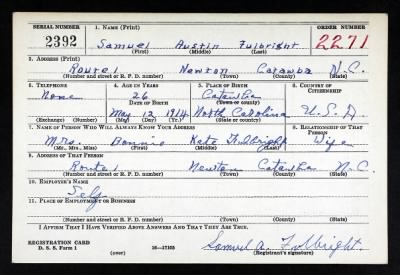 SERIAL NUMBER 1. NAME (Print) ORDER NUMBER
2392 Samuel Austin Fulbright 2271
(First) (Middle) (Last)
2. ADDRESS (Print)
Route 1 Newton Catawba N.C.
(Number and street or R. F. D. number) (Town) (County) (State)
3. TELEPHONE 4. AGE IN YEARS 5. PLACE OF BIRTH 6. COUNTRY OF CITIZENSHIP
None 26 Catawba
DATE OF BIRTH (Town or county)
May 12 1914 North Carolina U.S.A.
(Exchange) (Number) (Mo.) (Day) (Yr.) (State or country)
7. NAME OF PERSON WHO WILL ALWAYS KNOW YOUR ADDRESS 8. RELATIONSHIP OF THAT PERSON
Mrs. Bonnie Kate Fulbright Wife
(Mr., Mrs., Miss) (First) (Middle) (Last)
9. ADDRESS OF THAT PERSON
Route 1 Newton Catawba N.C.
(Number and street or R. F. D. number) (Town) (County) (State)
10. EMPLOYER'S NAME
Self
11. PLACE OF EMPLOYMENT OR BUSINESS
(Number and street or R. F. D. number) (Town) (County) (State)
I AFFIRM THAT I HAVE VERIFIED ABOVE ANSWERS AND THAT THEY ARE TRUE.
REGISTRATION CARD
D. S. S. Form 1 (over) 16—17105 Samuel A. Fulbright.
(Registrant's signature)